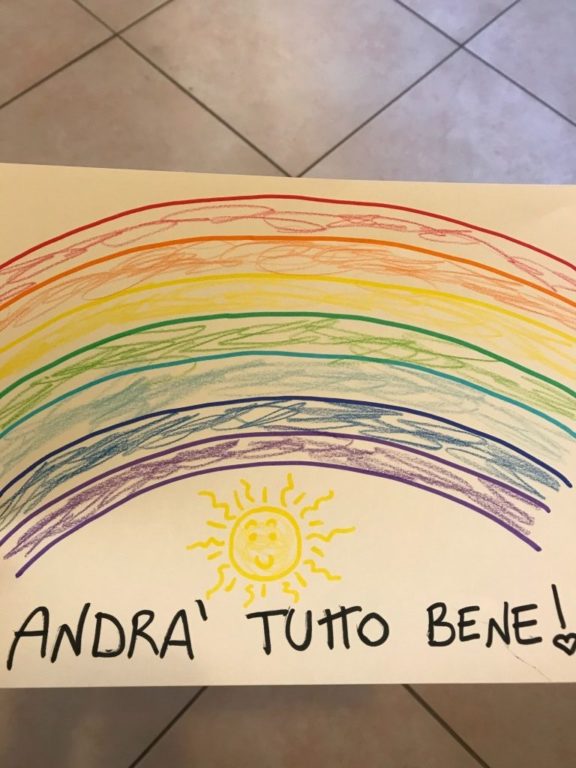 ANDRA' TUTTO BENE!